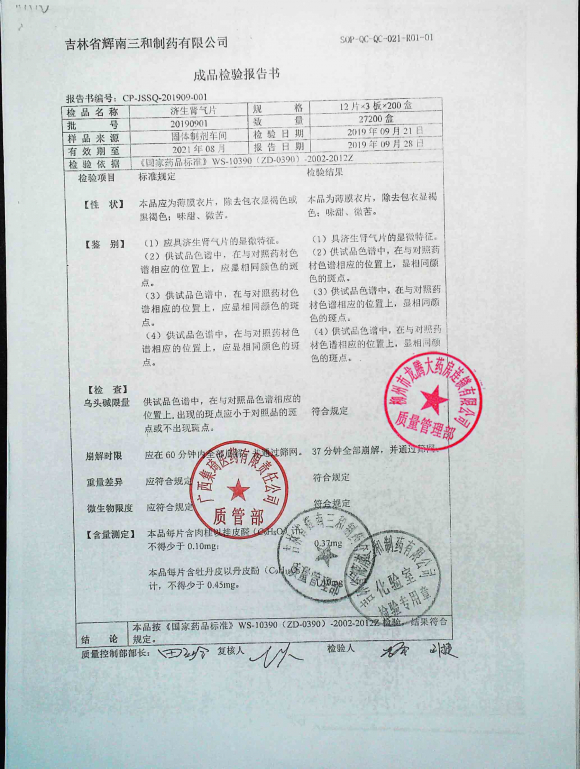 吉林省辉南三和制药有限公司 SOP-QC-QC-021-R01-01
成品检验报告书
报告书编号：CP-JSSQ-201909-001
检品名称 济生肾气片 规格 12片×3板×200盒
批号 20190901 数量 27200盒
样品来源 固体制剂车间 检验日期 2019年09月21日
有效期至 2021年08月 报告日期 2019年09月28日
检验依据 《国家药品标准》WS-10390（ZD-0390）-2002-2012Z
检验项目 标准规定 检验结果
【性 状】 本品应为薄膜衣片，除去包衣显褐色或 本品为薄膜衣片，除去包衣显褐
黑褐色；味甜、微苦。 色；味甜、微苦。
【鉴 别】 （1）应具济生肾气片的显微特征。 （1）具济生肾气片的显微特征。
（2）供试品色谱中，在与对照药材色 （2）供试品色谱中，在与对照药材
谱相应的位置上，应显相同颜色的斑 色谱相应的位置上，显相同颜
点。 色的斑点。
（3）供试品色谱中，在与对照药材色 （3）供试品色谱中，在与对照药
谱相应的位置上，应显相同颜色的斑 材色谱相应的位置上，显相同颜
点。 色的斑点。
（4）供试品色谱中，在与对照药材色 （4）供试品色谱中，在与对照药
谱相应的位置上，应显相同颜色的斑 材色谱相应的位置上，显相同颜
点。 色的斑点。
【检 查】
乌头碱限量 供试品色谱中，在与对照品色谱相应的
位置上，出现的斑点应小于对照品的斑 符合规定
点或不出现斑点。
崩解时限 应在60分钟内全部崩解，并通过筛网。 37分钟全部崩解，并通过筛网。
重量差异 应符合规定 符合规定
微生物限度 应符合规定 符合规定
【含量测定】 本品每片含肉桂以桂皮醛（C₉H₈O）计， 0.37mg
不得少于0.10mg；
本品每片含牡丹皮以丹皮酚（C₉H
计，不得少于0.45mg。
结论 本品按《国家药品标准》WS-10390（ZD-0390）-2002-2012Z检验，结果符合
规定。
质量控制部部长： 复核人 检验人
柳州市龙腾大药房连锁有限公司
质量管理部
广西集琦医药有限责任公司
质管部
吉林省辉南三和制药有限公司
制药有限公司
化验室
检验专用章